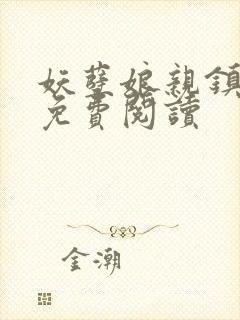 妖孽娘親鎮
免費閱讀
金潮